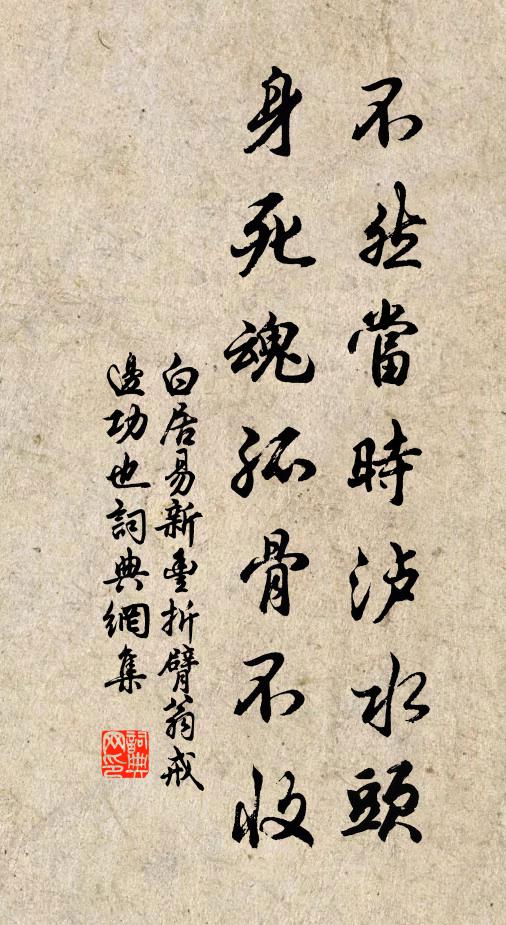 不然當時泸水頭
身死魂孤骨不收
白居易新豊折臂翁戒
邊功也詞典網集
詞典
网印